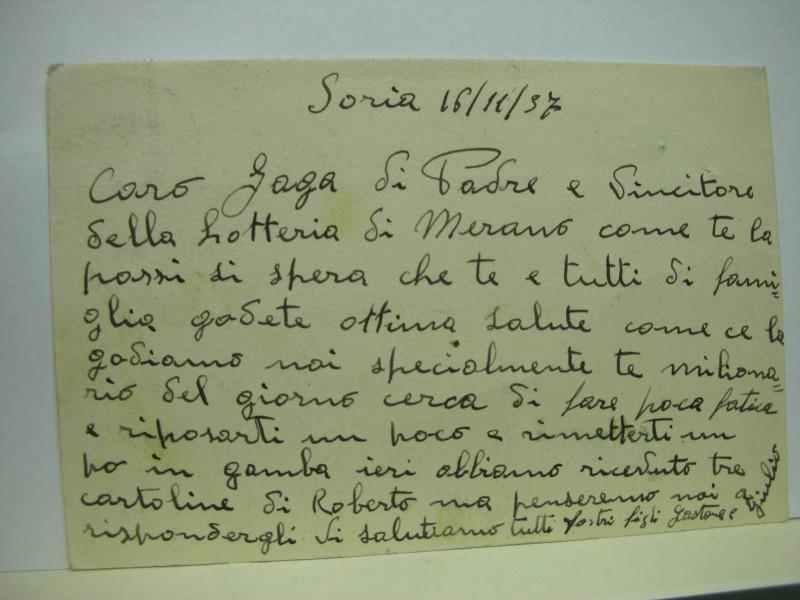 Soria 16/11/37
Caro Gaga di Padre e Vincitore
della Lotteria di Merano come te la
passi si spera che te e tutti di fami=
glia godete ottima salute come ce la
godiamo noi specialmente te miliona=
rio del giorno cerca di fare poca fatica
e riposarti un poco e rimetterti un
po in gamba ieri abbiamo ricevuto tre
cartoline di Roberto ma penseremo noi a
rispondergli Vi salutiamo tutti Vostri figli Gastone e Giulio